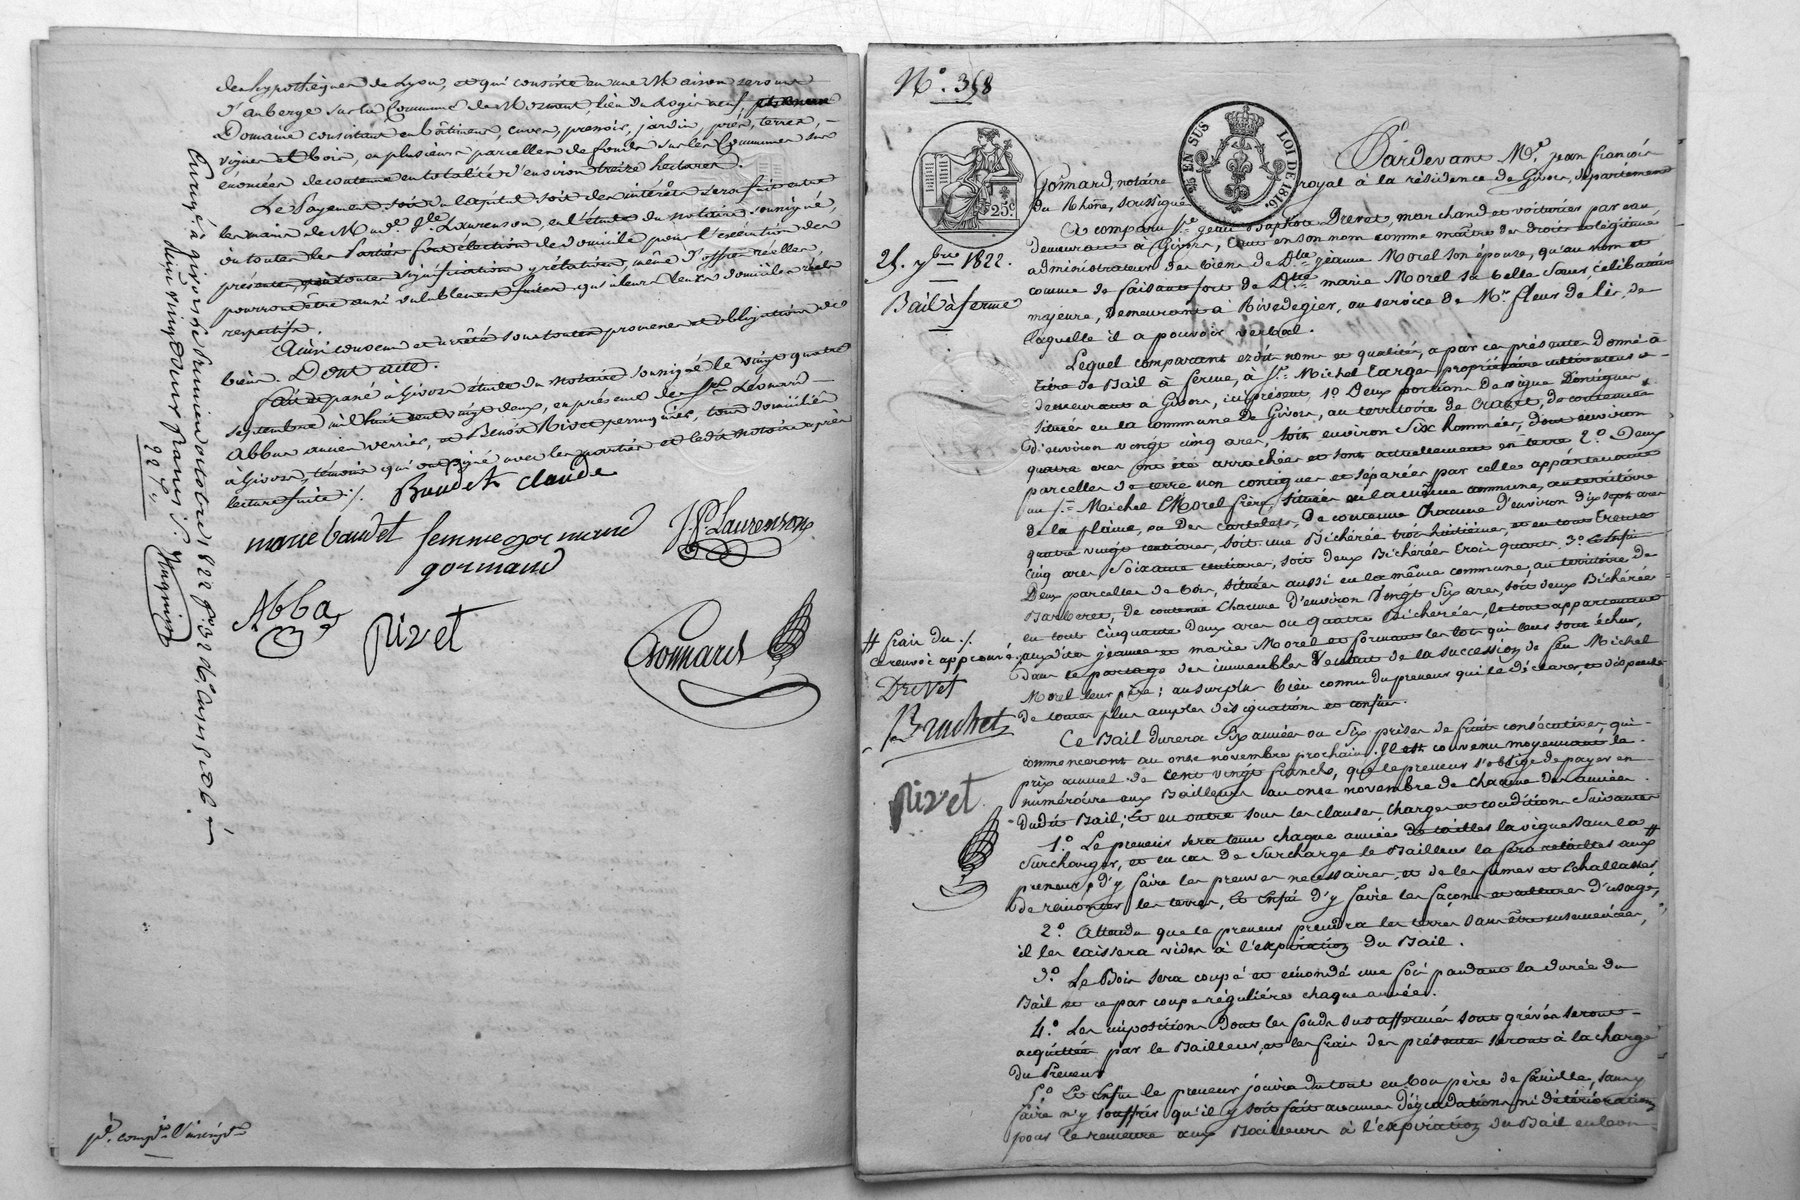 des hypothèques de Lyon, et qui consiste en une Maison servant
d'auberge sur la Commune de Mornant, lieu du Logis neuf,
Domaine consistant en bâtiment, cuves, pressoir, jardin, prés, terres,
vignes et bois, en plusieurs parcelles de fonds sur les Communes sus
énoncées de contenue en totalité d'environ treize hectares.
Le Payement soit du Capital soit des intérêts sera fait entre
les mains de M. Laurenson, en l'étude du notaire soussigné,
où toutes les Parties font élection de domicile pour l'exécution des
présentes, où toutes significations y relatives, même d'offres réelles,
pourront être aussi valablement faites qu'à leurs vrais domiciles réels
respectifs.
Ainsi convenu et arrêté sous toutes promesses et obligations de
biens. Dont acte.
fait et passé à Givors étude du notaire soussigné le vingt quatre
septembre mil huit cent vingt deux, en présence de Srs. Léonard
Abba ancien verrier, et Benoît Rivet perruquier, tous domiciliés
à Givors, témoins qui ont signé avec les parties et ledit notaire après
lecture faite ./.
Baudet claude
marie baudet femme gormand JP Laurenson
gormand
Abba
Rivet
Gonnard
Enregistré à givors le premier octobre 1822 f° 32
vingt deux francs
22 f.
N.° 358
5 EN SUS LOI DE 1816.
25c
25. 7bre 1822.
Bail à ferme
Pardevant M.e jean françois
Gonnard, notaire royal à la résidence de Givors, département
du Rhône, soussigné
A comparu Sr. jean Baptiste Drevet, marchand et voiturier par eau
demeurant à Givors, tant en son nom comme maître des droits et légitime
administrateur des biens de Dlle jeanne Morel son épouse, qu'au nom et
comme se faisant fort de Dlle marie Morel sa belle Sœur célibataire
majeure, demeurant à Rivedegier, au service de Mr. fleur de lis, de
laquelle il a pouvoir verbal.
Lequel comparant ezdits noms et qualités, a par ces présentes donné à
titre de Bail à ferme, à Sr. Michel Targe propriétaire cultivateur
demeurant à Givors, ici présent, 1.° Deux portions de vigne contigues
situées en la commune de Givors, au territoire de, de contenue
d'environ vingt cinq ares, soit environ Six hommées, dont environ
quatre ares ont été arrachés et sont actuellement en terre 2.° Deux
parcelles de terre non contigues et séparées par celle appartenante
au Sr. Michel Morel frère, situées en la même commune, au territoire
de la plaine, ou des cartelets, de contenue Chacune d'environ dix sept ares
quatre vingt centiares, soit une Bicherée trois huitièmes, et en tout trente
cinq ares Soixante centiares, soit deux Bicherées trois quarts. 3.° et Enfin
Deux parcelles de bois, situées aussi en la même commune, au territoire de
Barberet, de contenue Chacune d'environ Vingt Six ares, soit deux Bicherées
en tout Cinquante deux ares ou quatre Bicherées, le tout appartenant
auxdites jeanne et marie Morel et formant les lots qui leur sont échus,
dans le partage des immeubles Venant de la succession de feu Michel
Morel leur père; au surplus bien connu du preneur qui le déclare, et dispense
de toutes plus amples désignations et confins.
Ce Bail durera Six années ou Six prises de fruits consécutives, qui
commenceront au onze novembre prochain. Il est convenu moyennant le
prix annuel de cent vingt francs, que le preneur s'oblige de payer en
numéraire aux Bailleurs au onze novembre de chacune des années
dudit Bail; Et en outre sous les clauses, charges et conditions Suivantes
1.° Le preneur sera tenu chaque année de tailler la vigne sans la #
Surcharger, et en cas de surcharge le Bailleur la fera retailler aux
preneur, d'y faire les preuves nécessaires, et de les fumer et échallasser
de remonter les terres, et Enfin d'y faire les façons et cultures d'usage,
2.° Attendu que le preneur prendra les terres sans être ensemencées,
il les laissera vides à l'expiration du Bail.
3.° Le Bois sera coupé et émondé une fois pendant la durée du
Bail et ce par coupe régulière chaque année.
4.° Les impositions dont les fonds sus affermés sont grévés seront
acquittées par le Bailleur, et les frais des présentes seront à la charge
du Preneur
5.° Et Enfin le preneur jouira du tout en bon père de famille, sans y
faire n'y souffrir qu'il y soit fait aucunes dégradations ni détériorations
pour le remettre aux Bailleurs à l'expiration du Bail en bon
# frais du ./.
renvoi approuvé
Drevet
Bruchet
Rivet